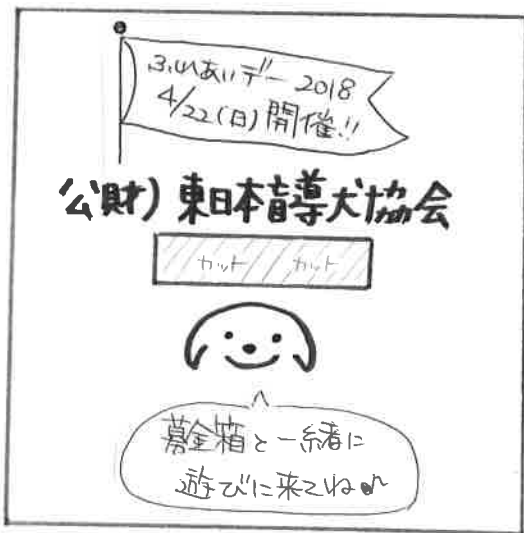 ふれあいデー 2018
4/22(日)開催!!
公財）東日本盲導犬協会
カット カット
募金箱と一緒に
遊びに来てね♪